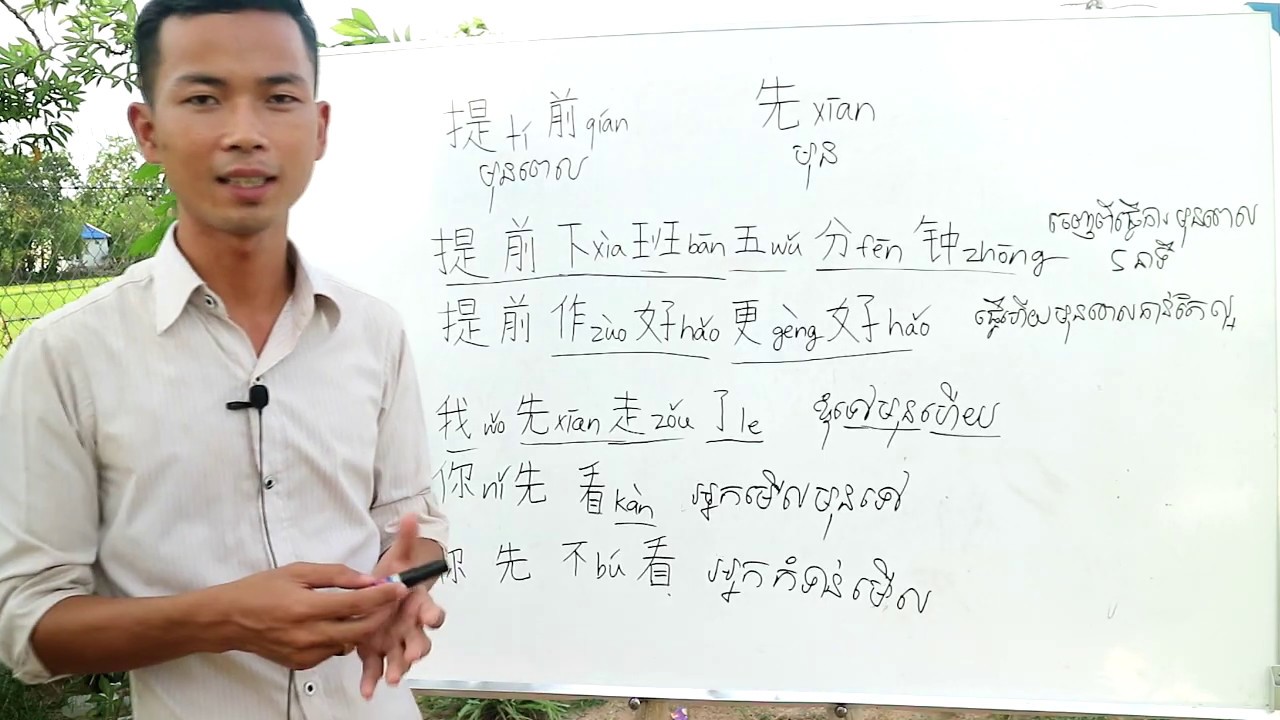 提 tí 前 qián 先 xiān
មុនពេល មុន
提 前 下 xià 班 bān 五 wǔ 分 fēn 钟 zhōng ចេញពីធ្វើការ មុនពេល
5 នាទី
提 前 作 zuò 好 hǎo 更 gèng 好 hǎo ធ្វើហើយមុនពេលកាន់តែល្អ
我 wǒ 先 xiān 走 zǒu 了 le ខ្ញុំទៅមុនហើយ
你 nǐ 先 看 kàn អ្នកមើលមុនទៅ
你 先 不 bú 看 អ្នកកុំទាន់មើល